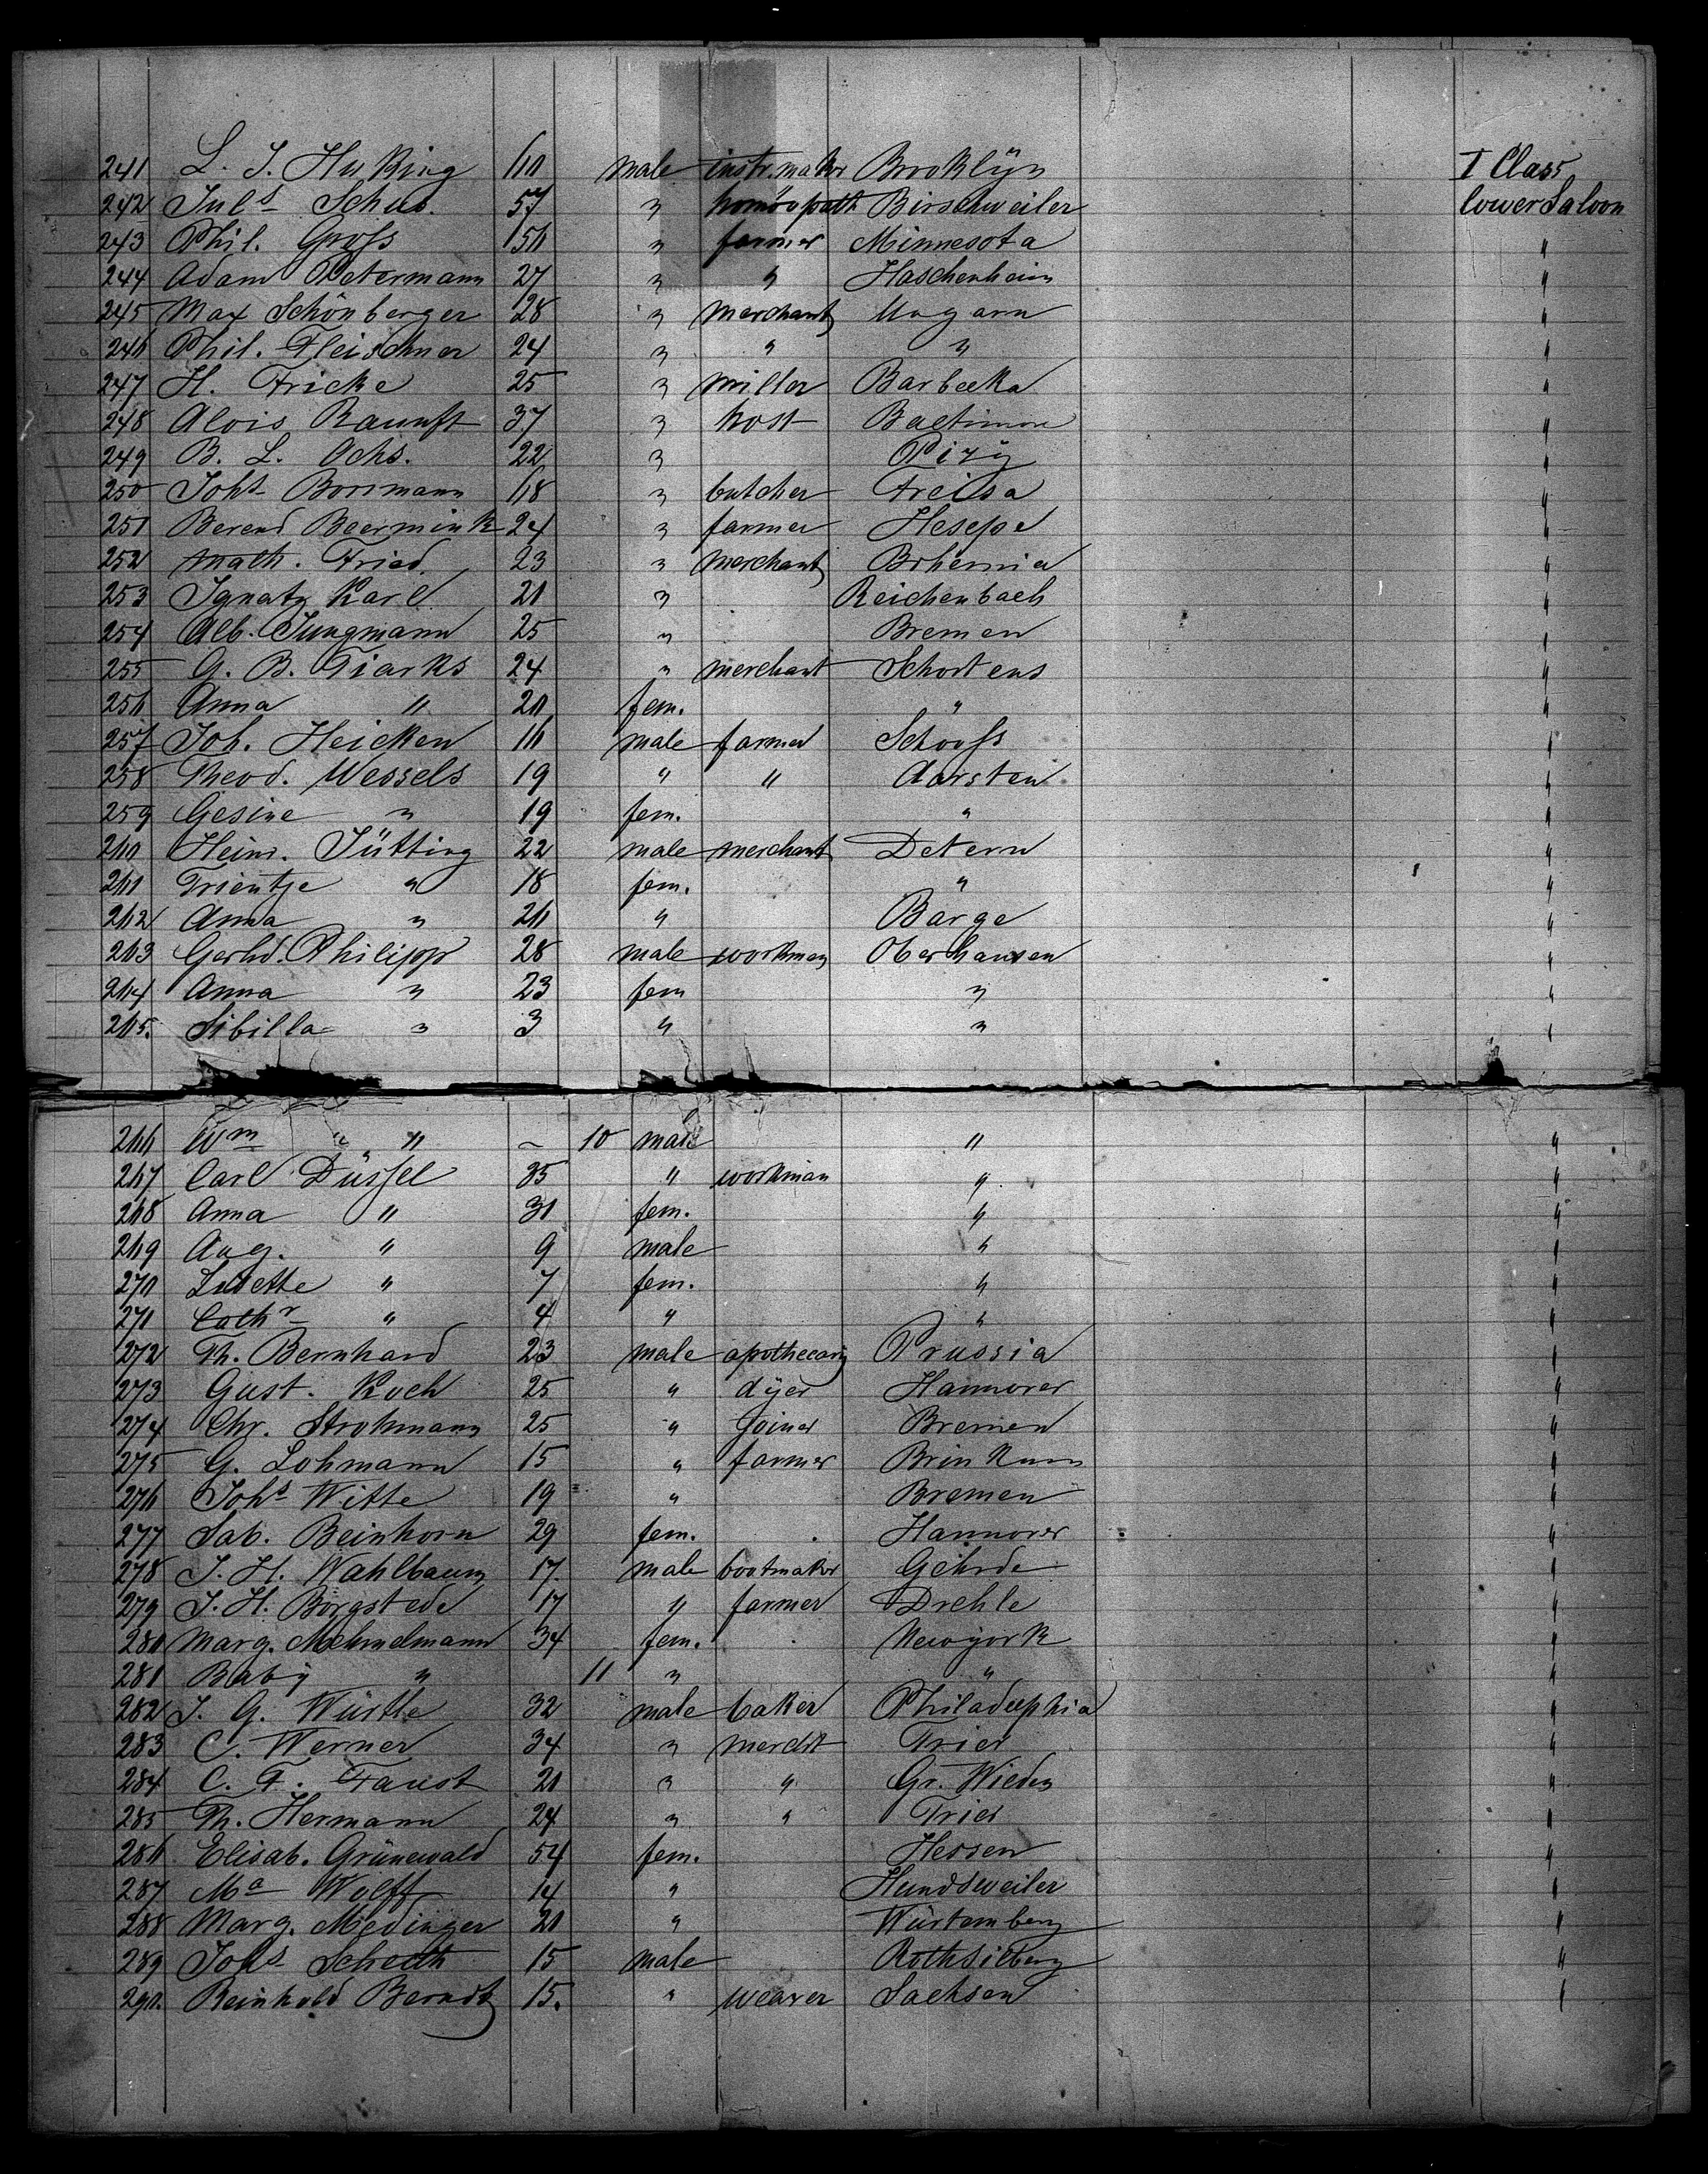 241 L. J. Huking 60 male instr. maker Brooklÿn I Class
242 Jul<sup>s</sup> Schub. 57 " homöopath Birschweiler lower Saloon
243 Phil. Gross 56 " farmer Minnesota "
244 Adam Petermann 27 " " Haschenheim "
245 Max Schönberger 28 " merchant Ungarn "
246 Phil. Fleischner 24 " " " "
247 H. Fricke 25 " miller Barbecka "
248 Alois Raunft 37 " host Baltimore "
249 B. L. Ochs. 22 " "
250 Joh<sup>s</sup> Borrmann 68 " butcher Freissa "
251 Berend Beermink 24 " farmer Hesepe "
252 Math. Fried. 23 " merchant Bohemia "
253 Ignatz Karl 20 " Reichenbach "
254 Alb. Jungmann 25 " Bremen "
255 G. B. Tiarks 24 " merchant Schortens "
256 Anna " 20 fem. " "
257 Joh. Heicken 16 male farmer Schoofs "
258 Theod. Wessels 19 " " Aarsten "
259 Gesine " 19 fem. " "
260 Heinr. Jütting 22 male merchant Detern "
261 Trientje " 18 fem. " "
262 Anna " 26 " Barge "
263 Gerhd. Philipp 28 male workman Oberhausen "
264 Anna " 23 fem " "
265. Sibilla " 3 " " "
266 W<sup>m</sup> " " ~ 10 male " "
267 Carl Düssel 35 " workman " "
268 Anna " 30 fem. " "
269 Aug. " 9 male " "
270 Lisette " 7 fem. " "
271 Cath<sup>r</sup> " 4 " " "
272 Th. Bernhard 23 male apothecary Prussia "
273 Gust. Koch 25 " dÿer Hannover "
274 Chr. Strohmann 25 " joiner Bremen "
275 G. Lohmann 15 " farmer Brinkum "
276 Joh<sup>s</sup> Witte 19 " Bremen "
277 Sab. Beinhorn 29 fem. Hannover "
278 J. H. Wahlbaum 17. male bootmaker Gehrde "
279 J. H. Borgstede 17 " farmer Drehle "
280 Marg. Mehmelmann 34 fem. Newÿork "
281 Babÿ " 11 " " "
282 J. G. Würtle 32 male baker Philadelphia "
283 C. Werner 34 " mercht Trier "
284 C. F. Faust 20 " " Gr. Wieden "
285 Th. Hermann 24 " " Trier "
286 Elisab. Grünewald 54 fem. Hessen "
287 M<sup>a</sup> Wolff 14 " Hundsweiler "
288 Marg. Medinger 20 " Würtemberg "
289 Joh<sup>s</sup> Scheith 15 male Rothsilberg "
290. Reinhold Berndt 15. " weaver Sachsen "